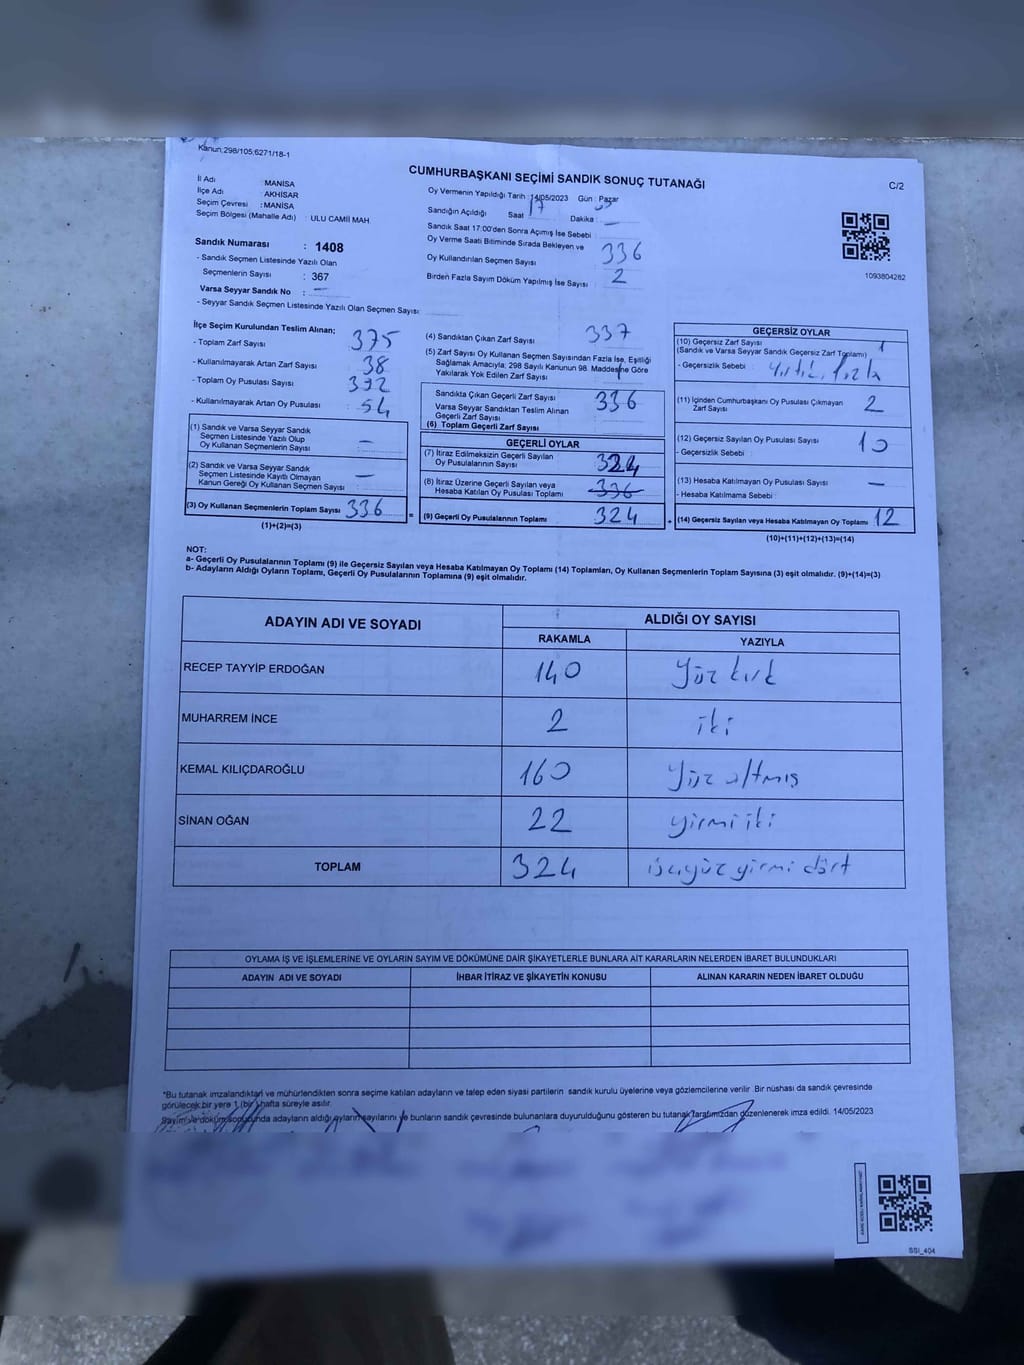 Kanun:298/105;6271/18-1
CUMHURBAŞKANI SEÇİMİ SANDIK SONUÇ TUTANAĞI
C/2
İl Adı : MANİSA
İlçe Adı : AKHİSAR
Seçim Çevresi : MANİSA
Seçim Bölgesi (Mahalle Adı) : ULU CAMİİ MAH.
Sandık Numarası : 1408
- Sandık Seçmen Listesinde Yazılı Olan
Seçmenlerin Sayısı : 367
Varsa Seyyar Sandık No : —
- Seyyar Sandık Seçmen Listesinde Yazılı Olan Seçmen Sayısı :
Oy Vermenin Yapıldığı Tarih : 14/05/2023 Gün : Pazar
Sandığın Açıldığı Saat : 17 Dakika : —
Sandık Saat 17:00'den Sonra Açılmış İse Sebebi :
Oy Verme Saati Bitiminde Sırada Bekleyen ve
Oy Kullandırılan Seçmen Sayısı : 336
Birden Fazla Sayım Döküm Yapılmış İse Sayısı : 2
1093804282
İlçe Seçim Kurulundan Teslim Alınan;
- Toplam Zarf Sayısı : 375
- Kullanılmayarak Artan Zarf Sayısı : 38
- Toplam Oy Pusulası Sayısı : 392
- Kullanılmayarak Artan Oy Pusulası : 54
(1) Sandık ve Varsa Seyyar Sandık
Seçmen Listesinde Yazılı Olup
Oy Kullanan Seçmenlerin Sayısı : —
(2) Sandık ve Varsa Seyyar Sandık
Seçmen Listesinde Kayıtlı Olmayan
Kanun Gereği Oy Kullanan Seçmen Sayısı : —
(3) Oy Kullanan Seçmenlerin Toplam Sayısı : 336
(1)+(2)=(3)
(4) Sandıktan Çıkan Zarf Sayısı : 337
(5) Zarf Sayısı Oy Kullanan Seçmen Sayısından Fazla İse, Eşitliği
Sağlamak Amacıyla; 298 Sayılı Kanunun 98. Maddesine Göre
Yakılarak Yok Edilen Zarf Sayısı : 1
Sandıkta Çıkan Geçerli Zarf Sayısı : 336
Varsa Seyyar Sandıktan Teslim Alınan
Geçerli Zarf Sayısı :
(6) Toplam Geçerli Zarf Sayısı :
GEÇERLİ OYLAR
(7) İtiraz Edilmeksizin Geçerli Sayılan
Oy Pusulalarının Sayısı : 324
(8) İtiraz Üzerine Geçerli Sayılan veya
Hesaba Katılan Oy Pusulası Toplamı : 336
= (9) Geçerli Oy Pusulalarının Toplamı : 324 +
GEÇERSİZ OYLAR
(10) Geçersiz Zarf Sayısı : 1
(Sandık ve Varsa Seyyar Sandık Geçersiz Zarf Toplamı)
- Geçersizlik Sebebi : Yırtık, fazla
(11) İçinden Cumhurbaşkanı Oy Pusulası Çıkmayan
Zarf Sayısı : 2
(12) Geçersiz Sayılan Oy Pusulası Sayısı : 10
- Geçersizlik Sebebi :
(13) Hesaba Katılmayan Oy Pusulası Sayısı : —
- Hesaba Katılmama Sebebi :
(14) Geçersiz Sayılan veya Hesaba Katılmayan Oy Toplamı : 12
(10)+(11)+(12)+(13)=(14)
NOT:
a- Geçerli Oy Pusulalarının Toplamı (9) ile Geçersiz Sayılan veya Hesaba Katılmayan Oy Toplamı (14) Toplamları, Oy Kullanan Seçmenlerin Toplam Sayısına (3) eşit olmalıdır. (9)+(14)=(3)
b- Adayların Aldığı Oyların Toplamı, Geçerli Oy Pusulalarının Toplamına (9) eşit olmalıdır.
ADAYIN ADI VE SOYADI ALDIĞI OY SAYISI
RAKAMLA YAZIYLA
RECEP TAYYİP ERDOĞAN 140 Yüz kırk
MUHARREM İNCE 2 iki
KEMAL KILIÇDAROĞLU 160 Yüz altmış
SİNAN OĞAN 22 yirmi iki
TOPLAM 324 üçyüz yirmi dört
OYLAMA İŞ VE İŞLEMLERİNE VE OYLARIN SAYIM VE DÖKÜMÜNE DAİR ŞİKAYETLERLE BUNLARA AİT KARARLARIN NELERDEN İBARET BULUNDUKLARI
ADAYIN ADI VE SOYADI İHBAR İTİRAZ VE ŞİKAYETİN KONUSU ALINAN KARARIN NEDEN İBARET OLDUĞU
*Bu tutanak imzalandıktan ve mühürlendikten sonra seçime katılan adayların ve talep eden siyasi partilerin sandık kurulu üyelerine veya gözlemcilerine verilir. Bir nüshası da sandık çevresinde
görülecek bir yere 1 (bir) hafta süreyle asılır.
Sayım ve döküm sonucunda adayların aldığı oyların sayılarını ve bunların sandık çevresinde bulunanlara duyurulduğunu gösteren bu tutanak tarafımızdan düzenlenerek imza edildi. 14/05/2023
SSI_404